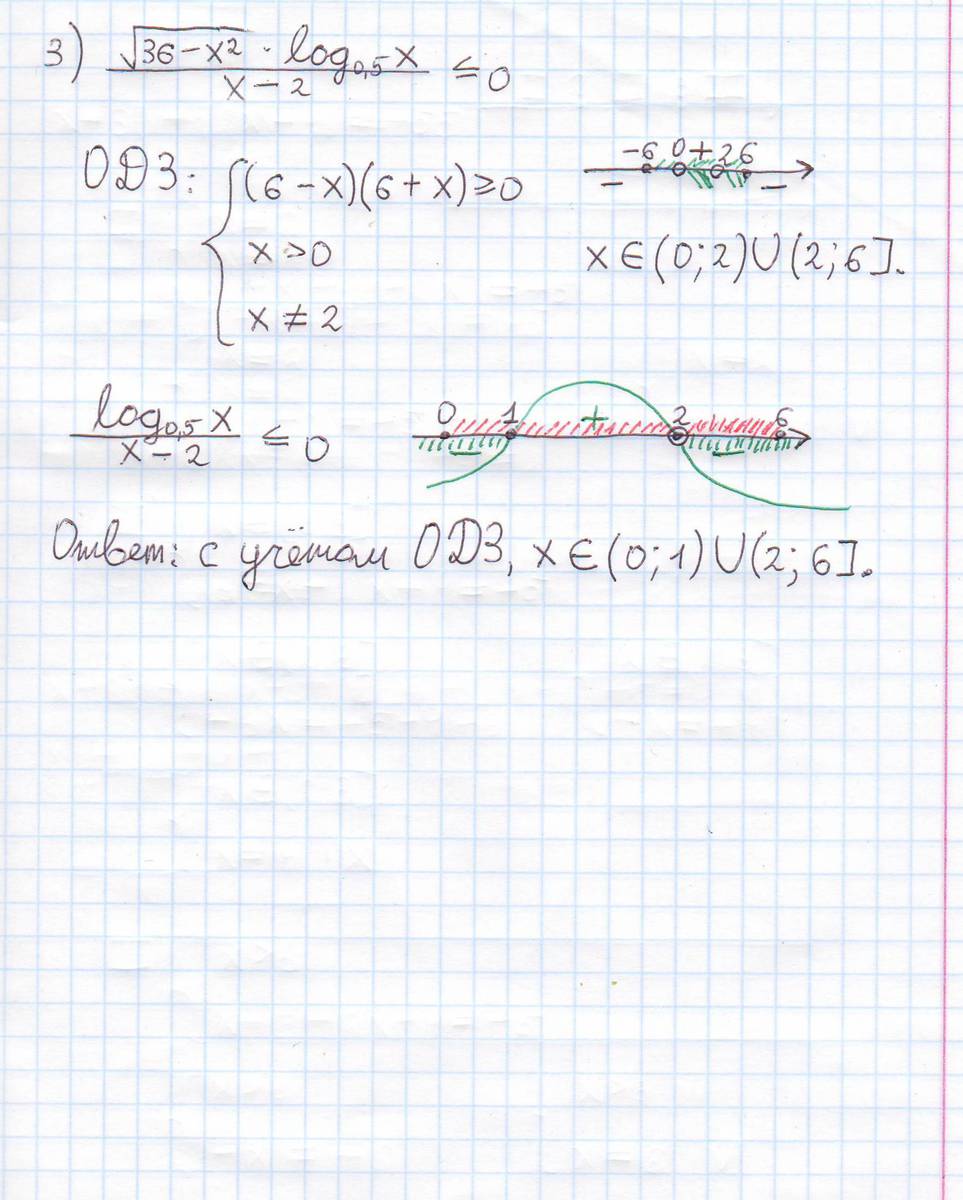 3) √(36-x²) · log₀,₅x / (x-2) ≤ 0
ОДЗ: { (6-x)(6+x) ≥ 0
x > 0
x ≠ 2
-6 0 + 2 6
- -
x ∈ (0; 2) ∪ (2; 6].
log₀,₅x / (x-2) ≤ 0
0 1 + 2 6
- -
Ответ: с учётом ОДЗ, x ∈ (0; 1) ∪ (2; 6].